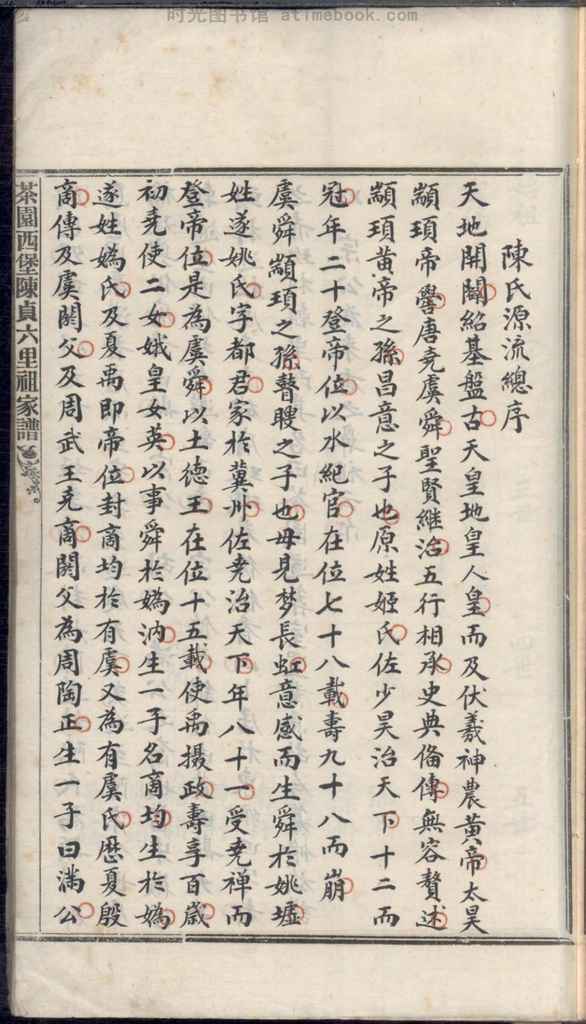 时光图书馆 atimebook.com
陳氏源流總序
天地開闢紹基盤古天皇地皇人皇而及伏羲神農黃帝太昊
顓頊帝嚳唐堯虞舜聖賢繼治五行相承史典俻傳無容贅述
顓頊黃帝之孫昌意之子也原姓姬氏佐少昊治天下十二而
冠年二十登帝位以水紀官在位七十八載壽九十八而崩
虞舜顓頊之孫瞽瞍之子也母見梦長虹意感而生舜於姚墟
姓遂姚氏字都君家於冀州佐堯治天下年八十一受堯禅而
登帝位是為虞舜以土德王在位十五載使禹摄政壽享百歲
初堯使二女娥皇女英以事舜於媯汭生一子名商均生於媯
遂姓媯氏及夏禹即帝位封商均於有虞又為有虞氏歷夏殷
商傳及虞閼父及周武王克商閼父為周陶正生一子曰滿公
茶園西堡陳貞六里祖家譜